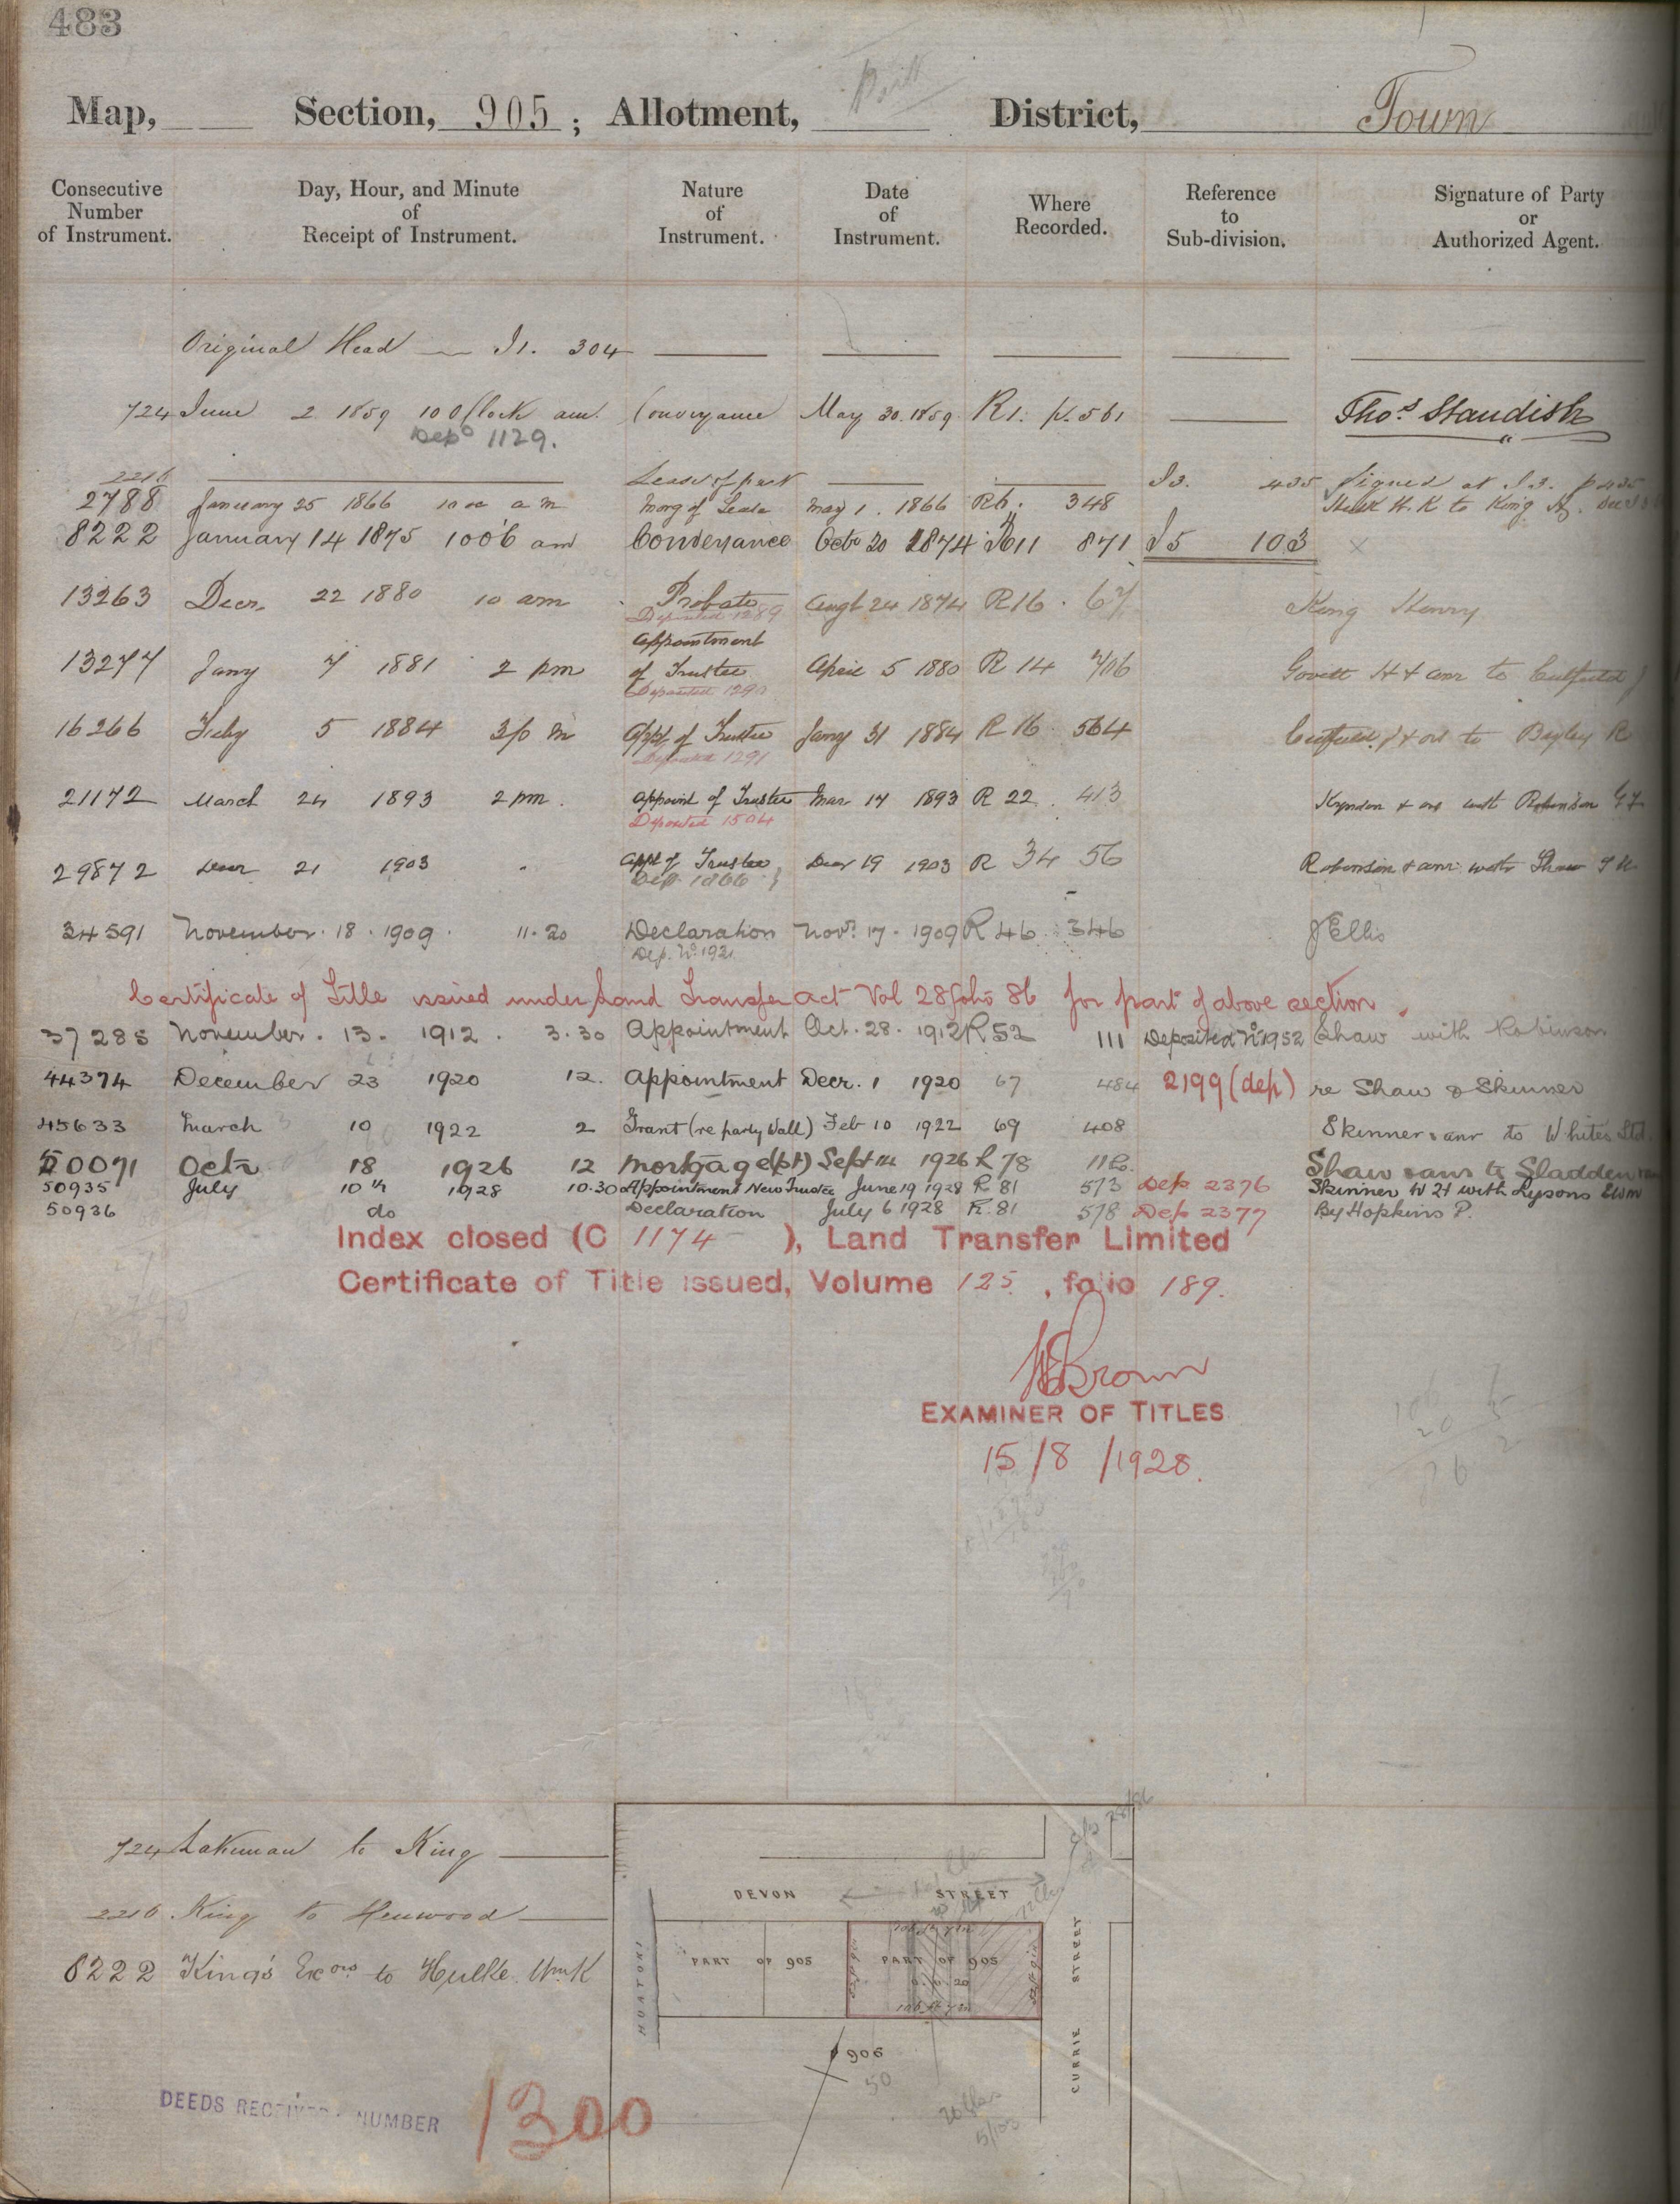 483
Map, Section, 905 ; Allotment, Part District, Town
Consecutive Number of Instrument. Day, Hour, and Minute of Receipt of Instrument. Nature of Instrument. Date of Instrument. Where Recorded. Reference to Sub-division. Signature of Party or Authorized Agent.
Original Head I1. 304
724 June 2 1859 10 O'Clock am. Conveyance May 30. 1859 R1. p. 561 Thos. Standish
Depo 1129.
2216 Lease of part I3. 435 Signed at I3. p 435
2788 January 25 1866 10 a m Morg of Lease May 1. 1866 348 W. K to King
8222 January 14 1875 10 0'6 am Conveyance Octr 20 1874 871 I5 103 x
13263 Decr. 22 1880 10 am Probate Augt 24 1874 R16. 67 King Henry
Deposited 1289
Appointment
13277 Jany 7 1881 2 pm of Trustee April 5 1880 R 14 706 Govett H & anr to
Deposited 1290
16266 Feby 5 1884 3 p m Appt. of Trustee Jany 31 1884 R 16. 564 to Bayley R
Deposited 1291
21172 March 24 1893 2 pm. Appoint of Trustee Mar 17 1893 R 22. 413 with Robinson
Deposited 1504
29872 Decr 21 1903 Appt of Trustee Decr 19 1903 R 34 56 Robinson & anr with Shaw
Dep. 1866
34591 November. 18. 1909. 11.20 Declaration Novr. 17. 1909 R 46. 346 J Ellis
Dep. No. 1921
Certificate of Title issued under Land Transfer Act Vol 28 folio 86 for part of above section.
37285 November. 13. 1912. 3.30 Appointment Oct. 28. 1912 R 52 111 Deposited No 1952 Shaw with Robinson
44374 December 23 1920 12. Appointment Decr. 1 1920 67 484 2199 (dep) re Shaw & Skinner
45633 March 10 1922 2 Grant (re party wall) Feb 10 1922 69 408 Skinner & anr to Whites Ltd.
50071 Octr 18 1926 12 Mortgage (pt) Sept 14 1926 R 78 Shaw & anr to Sladden
50935 July 10th 1928 10.30 Appointment New Trustee June 19 1928 R. 81 573 Dep 2376 Skinner W H with Lysons EWM
50936 do Declaration July 6 1928 R. 81 578 Dep 2377 By Hopkins P.
Index closed (C 1174 ), Land Transfer Limited
Certificate of Title issued, Volume 125, folio 189.
Brown
EXAMINER OF TITLES
15/8/1928.
724 Lakeman to King
2216 King to Henwood
8222 King's Exors to Hulke Wm K
DEVON STREET
HUATOKI
PART OF 905
PART OF 905
CURRIE STREET
906
50
DEEDS RECEIVER'S NUMBER 1300